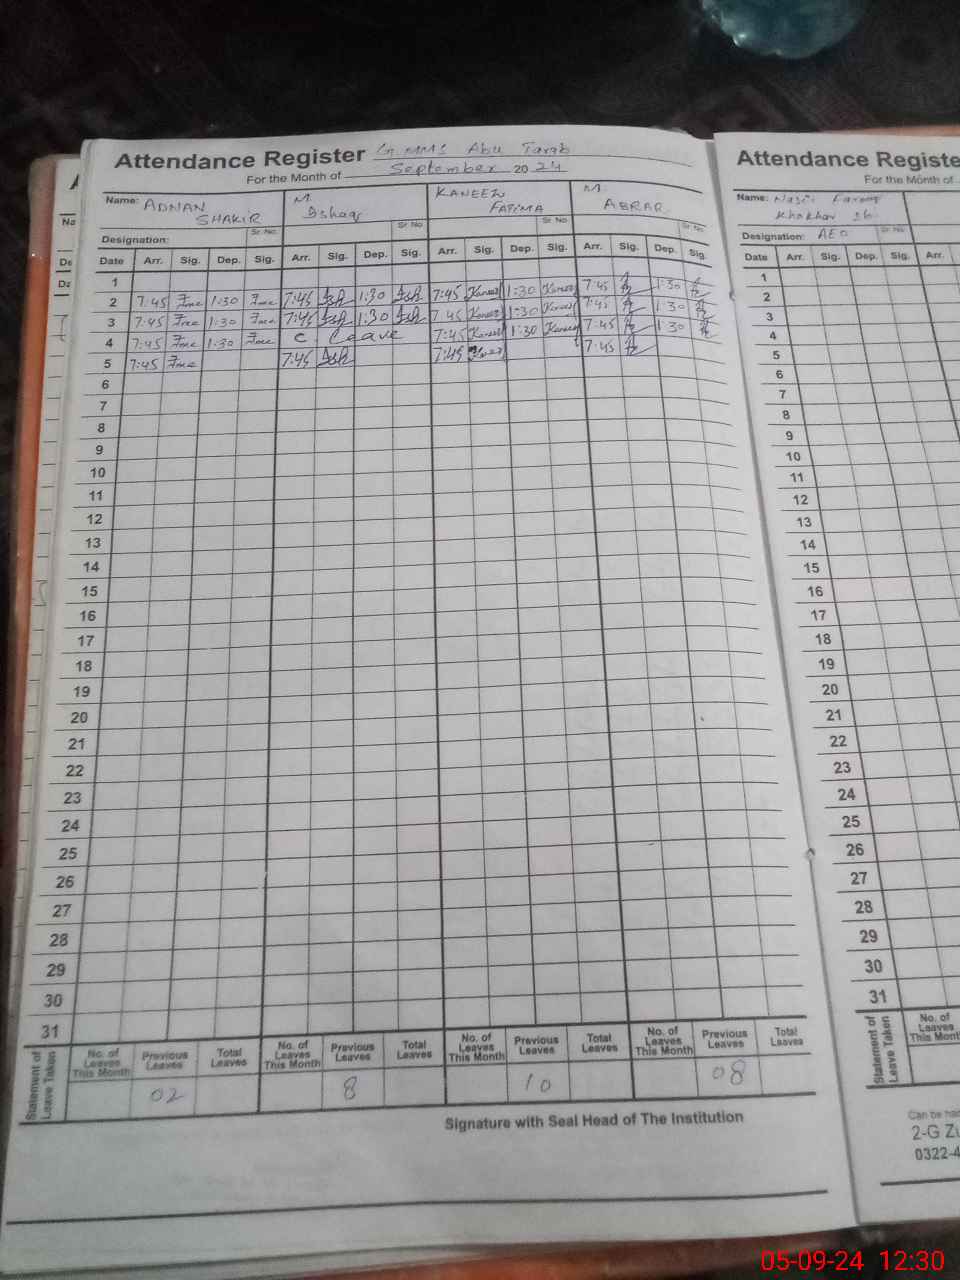 Attendance Register G MMS Abu Tarab
For the Month of September 2024
Name: ADNAN SHAKIR M. Ishaq KANEEZ FATIMA M. ABRAR
Sr. No. Sr. No Sr. No Sr. No
Designation:
Date Arr. Sig. Dep. Sig. Arr. Sig. Dep. Sig. Arr. Sig. Dep. Sig. Arr. Sig. Dep. Sig.
1
2 7:45 1:30 7:45 Ish 1:30 Ish 7:45 Kaneez 1:30 Kaneez 7:45 1:30
3 7:45 1:30 7:45 Ish 1:30 Ish 7:45 Kaneez 1:30 Kaneez 7:45 1:30
4 7:45 1:30 C. Leave 7:45 Kaneez 1:30 Kaneez 7:45 1:30
5 7:45 7:45 Ish 7:45 Kaneez 7:45
6
7
8
9
10
11
12
13
14
15
16
17
18
19
20
21
22
23
24
25
26
27
28
29
30
31
Statement of Leave Taken
No. of Leaves This Month Previous Leaves Total Leaves No. of Leaves This Month Previous Leaves Total Leaves No. of Leaves This Month Previous Leaves Total Leaves No. of Leaves This Month Previous Leaves Total Leaves
02 8 10 08
Signature with Seal Head of The Institution
Attendance Registe
For the Month of
Name: Nasir Farooq
Khokhar Sb.
Designation: AEO Sr. No.
Date Arr. Sig. Dep. Sig. Arr.
1
2
3
4
5
6
7
8
9
10
11
12
13
14
15
16
17
18
19
20
21
22
23
24
25
26
27
28
29
30
31
Statement of Leave Taken
No. of Leaves This Mont
Can be had
2-G Zu
0322-4
05-09-24 12:30